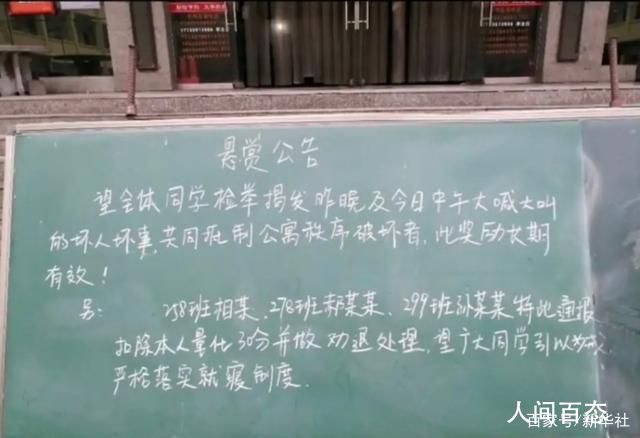 悬赏公告
望全体同学检举揭发昨晚及今日中午大喊大叫
的坏人坏事,共同抵制公寓秩序破坏者,此奖励长期
有效!
另: 258班相某、278班郝某某、299班孙某某特此通报
扣除本人量化30分并做劝退处理,望广大同学引以为戒
严格落实就寝制度.
人间百态
百家号/新华社